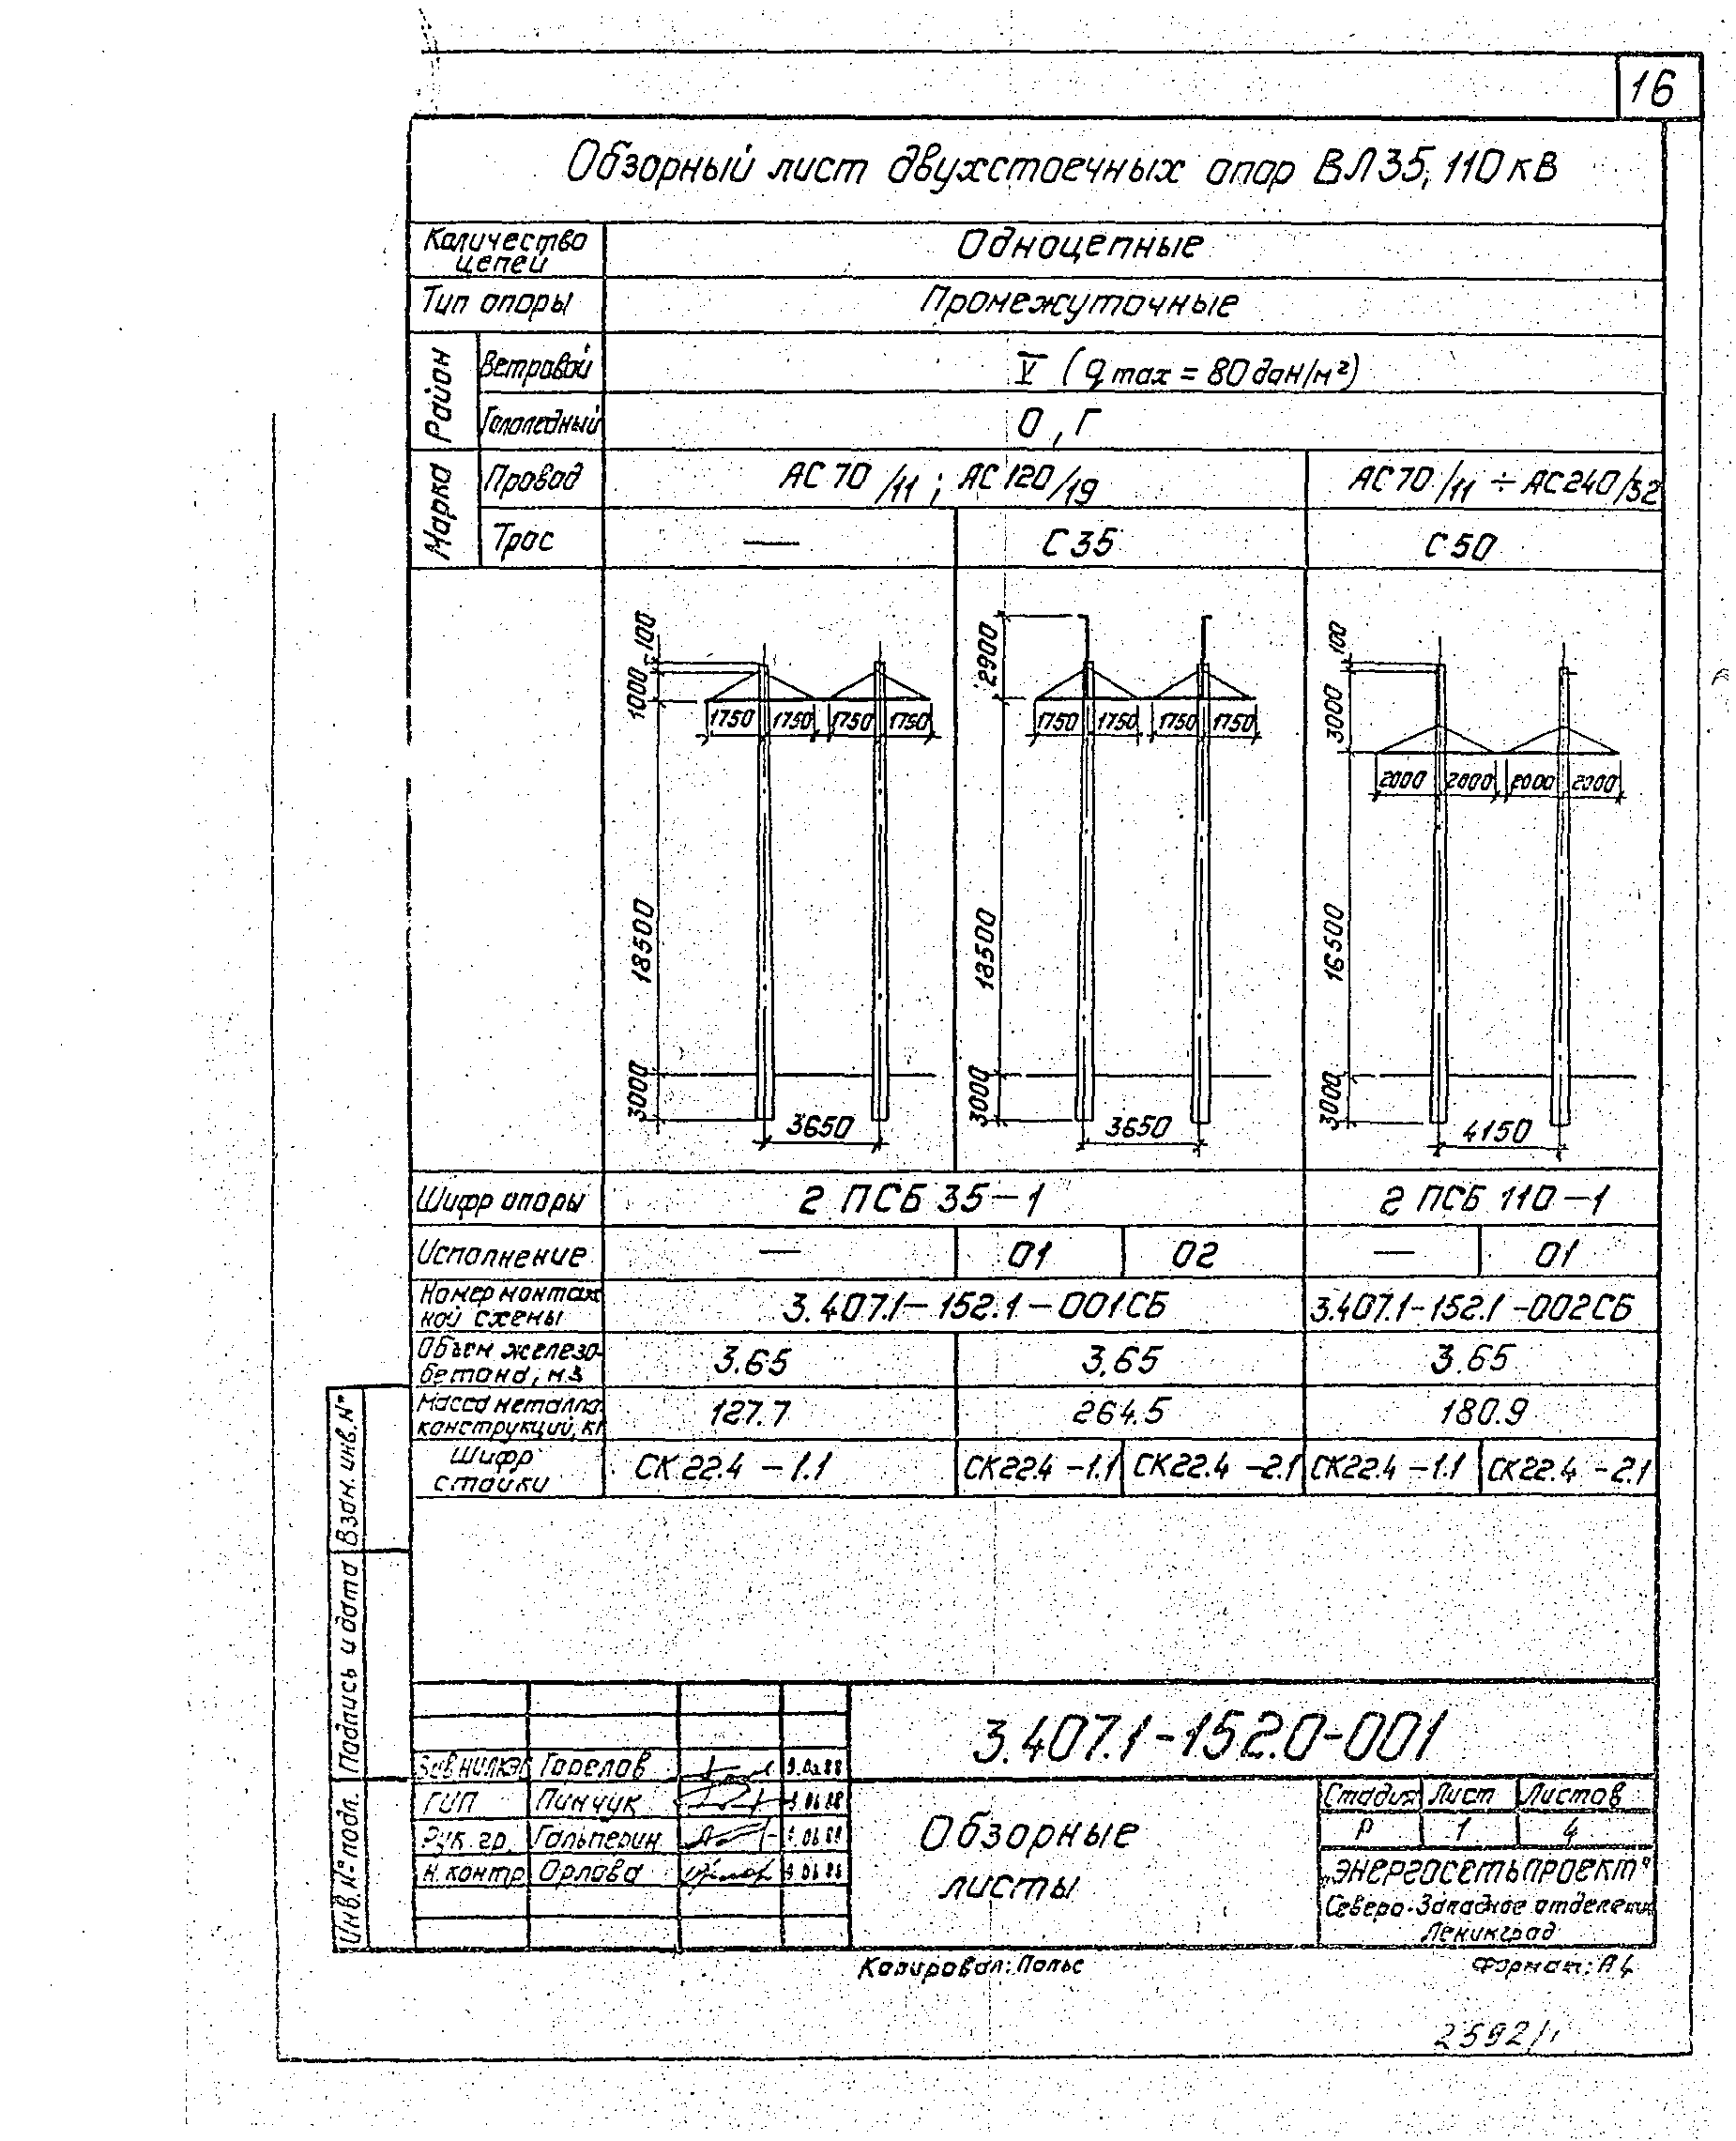 16
Обзорный лист двухстоечных опор ВЛ 35, 110 кВ
Количество цепей
Одноцепные
Тип опоры
Промежуточные
Район
Ветровой
V (q max = 80 дан/м²)
Гололедный
0, Г
Марка
Провод
АС 70/11; АС 120/19
АС 70/11 ÷ АС 240/32
Трос
—
С 35
С 50
100
1000
18500
3000
1750 1750 1750 1750
3650
2900
18500
3000
1750 1750 1750 1750
3650
100
3000
16500
3000
2000 2000 2000 2000
4150
Шифр опоры
2 ПСБ 35-1
2 ПСБ 110-1
Исполнение
— 01 02 — 01
Номер монтаж
ной схемы
3.407.1-152.1-001СБ
3.407.1-152.1-002СБ
Объем железо-
бетона, м3
3.65 3.65 3.65
Масса металло
конструкций, кг
127.7 264.5 180.9
Шифр
стойки
СК 22.4-1.1 СК22.4-1.1 СК22.4-2.1 СК22.4-1.1 СК22.4-2.1
Взам. инв. №
Подпись и дата
Инв. № подл.
3.407.1-152.0-001
Горелов
ГИП Пинчук
Рук. гр. Гальперин
Н. контр Орлова
Обзорные
листы
Стадия Лист Листов
Р 1 4
„ЭНЕРГОСЕТЬПРОЕКТ"
Северо-Западное отделение
Ленинград
Копировал: Польс
Формат: А4
2592/1